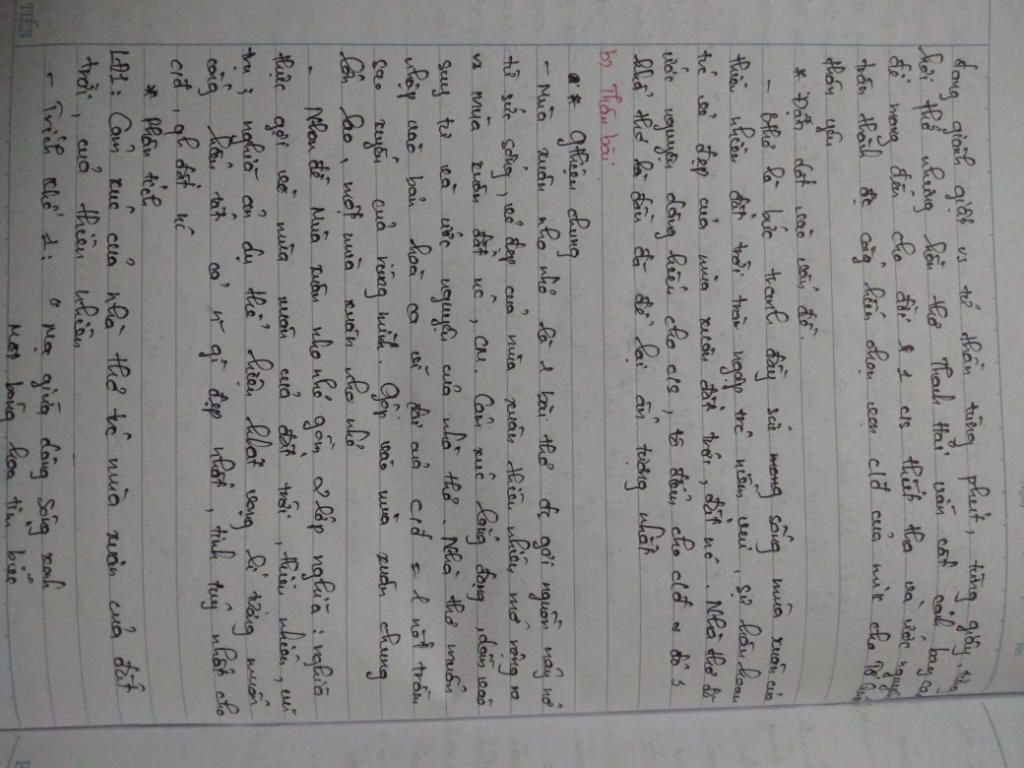 đang giành giật vs tử thần từng phút, từng giây, từng
hơi thở nhưng hồn thơ Thanh Hải vẫn cất cánh bay cao
để mang đến cho đời 1 c/s thiết tha và ước nguyện
chân thành đc cống hiến trọn vẹn c/đ của mình cho Tổ quốc
thân yêu
* Dẫn dắt vào vấn đề.
- Bthơ là bức tranh đầy sức mong sống mùa xuân của
thiên nhiên đất trời tràn ngập trc niềm vui, sự hân hoan
trc vẻ đẹp của mùa xuân đất trời, đất nc. Nhà thơ đã
ước nguyện dâng hiến cho c/s, tô điểm cho c/đ
khổ thơ là đã để lại ấn tượng nhất
b) Thân bài
* Giới thiệu chung
- Mùa xuân nho nhỏ là 1 bài thơ đc gợi nguồn nảy nở
từ sức sống, vẻ đẹp của mùa xuân thiên nhiên mở rộng ra
vs mùa xuân đất nc, CM. Cảm xúc lắng đọng, dồn vào
suy tư và ước nguyện của nhà thơ. Nhà thơ muốn
nhập vào bản hoà ca vĩ đại của c/đ = 1 nốt trầm
xao xuyến của riêng mình. Góp vào mùa xuân chung
lớn lao, một mùa xuân nho nhỏ
- Nhan đề Mùa xuân nho nhỏ gồm 2 lớp nghĩa: nghĩa
thực gợi về mùa xuân của đất trời, thiên nhiên, vũ
trụ; nghĩa ẩn dụ thể hiện khát vọng lí tưởng muốn
cống hiến tất cả n gì đẹp nhất, tinh tuý nhất cho
c/đ, qh đất nc
* Phân tích
LĐ1: Cảm xúc của nhà thơ trc mùa xuân của đất
trời, của thiên nhiên
- Trích khổ 1: " Mọc giữa dòng sông xanh
Một bông hoa tím biếc
TIẾN